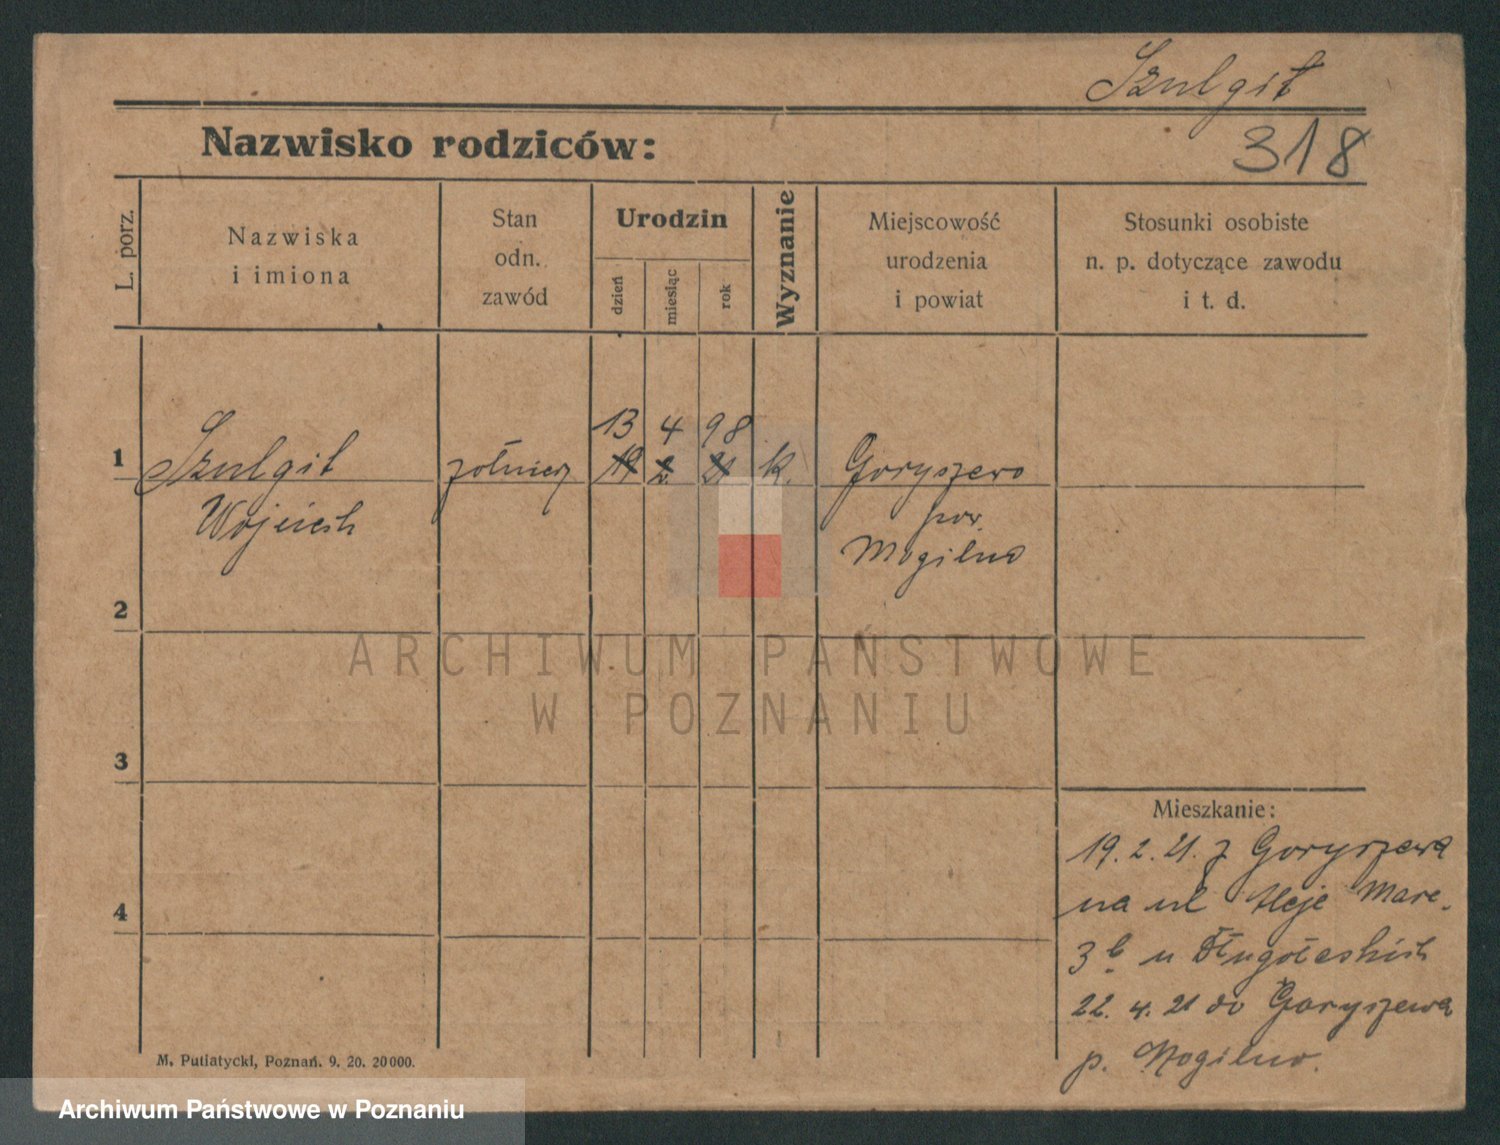 Szulgit
318
Nazwisko rodziców:
L. porz.
Nazwiska
i imiona
Stan
odn.
zawód
Urodzin
dzień
miesiąc
rok
Wyznanie
Miejscowość
urodzenia
i powiat
Stosunki osobiste
n. p. dotyczące zawodu
i t. d.
13 4 98
1 Szulgit żołnierz 19 2. 21 k. Goryszewo
Wojciech pow.
Mogilno
2
ARCHIWUM PAŃSTWOWE
W POZNANIU
3
Mieszkanie:
19. 2. 21. z Goryszewa
na ul Aleje Marc.
4
3 b u Długołęskich
22. 4. 21 do Goryszewa
p. Mogilno.
M. Putiatycki, Poznań. 9. 20. 20000.
Archiwum Państwowe w Poznaniu